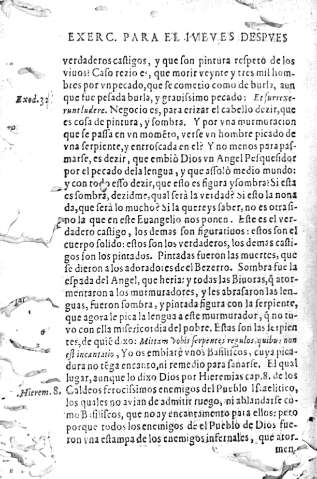 EXERC. PARA EL IVEVES DESPVES
verdaderos castigos, y que son pintura respeto de los
viuos? Caso rezio es, que morir veynte y tres mil hom-
bres por vn pecado, que se cometio como de burla, aun
Exod. 32 que fue pesada burla, y grauissimo pecado: Et surrexe-
runt ludere. Negocio es, para erizar el cabello dezir, que
es cosa de pintura, y sombra. Y por vna murmuracion
que se passa en vn momẽto, verse vn hombre picado de
vna serpiente, y enroscada en el? Y no menos para pas-
marse, es dezir, que embiò Dios vn Angel Pesquesidor
por el pecado de la lengua, y que assolò medio mundo:
y con todo esso dezir, que esto es figura y sombra: Si esta
es sombra, dezidme, qual serà la verdad? Si esto la nona
da, que serà lo mucho? Si la quereys saber, no es otra sino
la que en este Euangelio nos ponen. Este es el ver-
dadero castigo, los demas son figuratiuos: estos son el
cuerpo solido: estos son los verdaderos, los demas casti-
gos son los pintados. Pintadas fueron las muertes, que
se dieron a los adoradores del Bezerro. Sombra fue la
espada del Angel, que heria: y todas las Biuoras, q̃ ator-
mentaron a los murmuradores, y les abrasaron las len-
guas, fueron sombra, y pintada figura con la serpiente,
que agora le pica la lengua a este murmurador, q̃ no tu-
vo con ella misericordia del pobre. Estas son las serpien
tes, de quiẽ dixo: Mittam vobis serpentes regulos, quibus non
est incantatio, Yo os embiarè vnos Basiliscos, cuya pica-
dura no tẽga encanto, ni remedio para sanarse. El qual
lugar, aunque lo dixo Dios por Hieremias cap. 8. de los
Hierem. 8. Caldeos ferocissimos enemigos del Pueblo Israelitico,
los quales no avian de admitir ruego, ni ablandarse co-
mo Basiliscos, que no ay encantamento para ellos: pero
porque todos los enemigos de el Pueblo de Dios fue-
ron vna estampa de los enemigos infernales, que ator-
men-